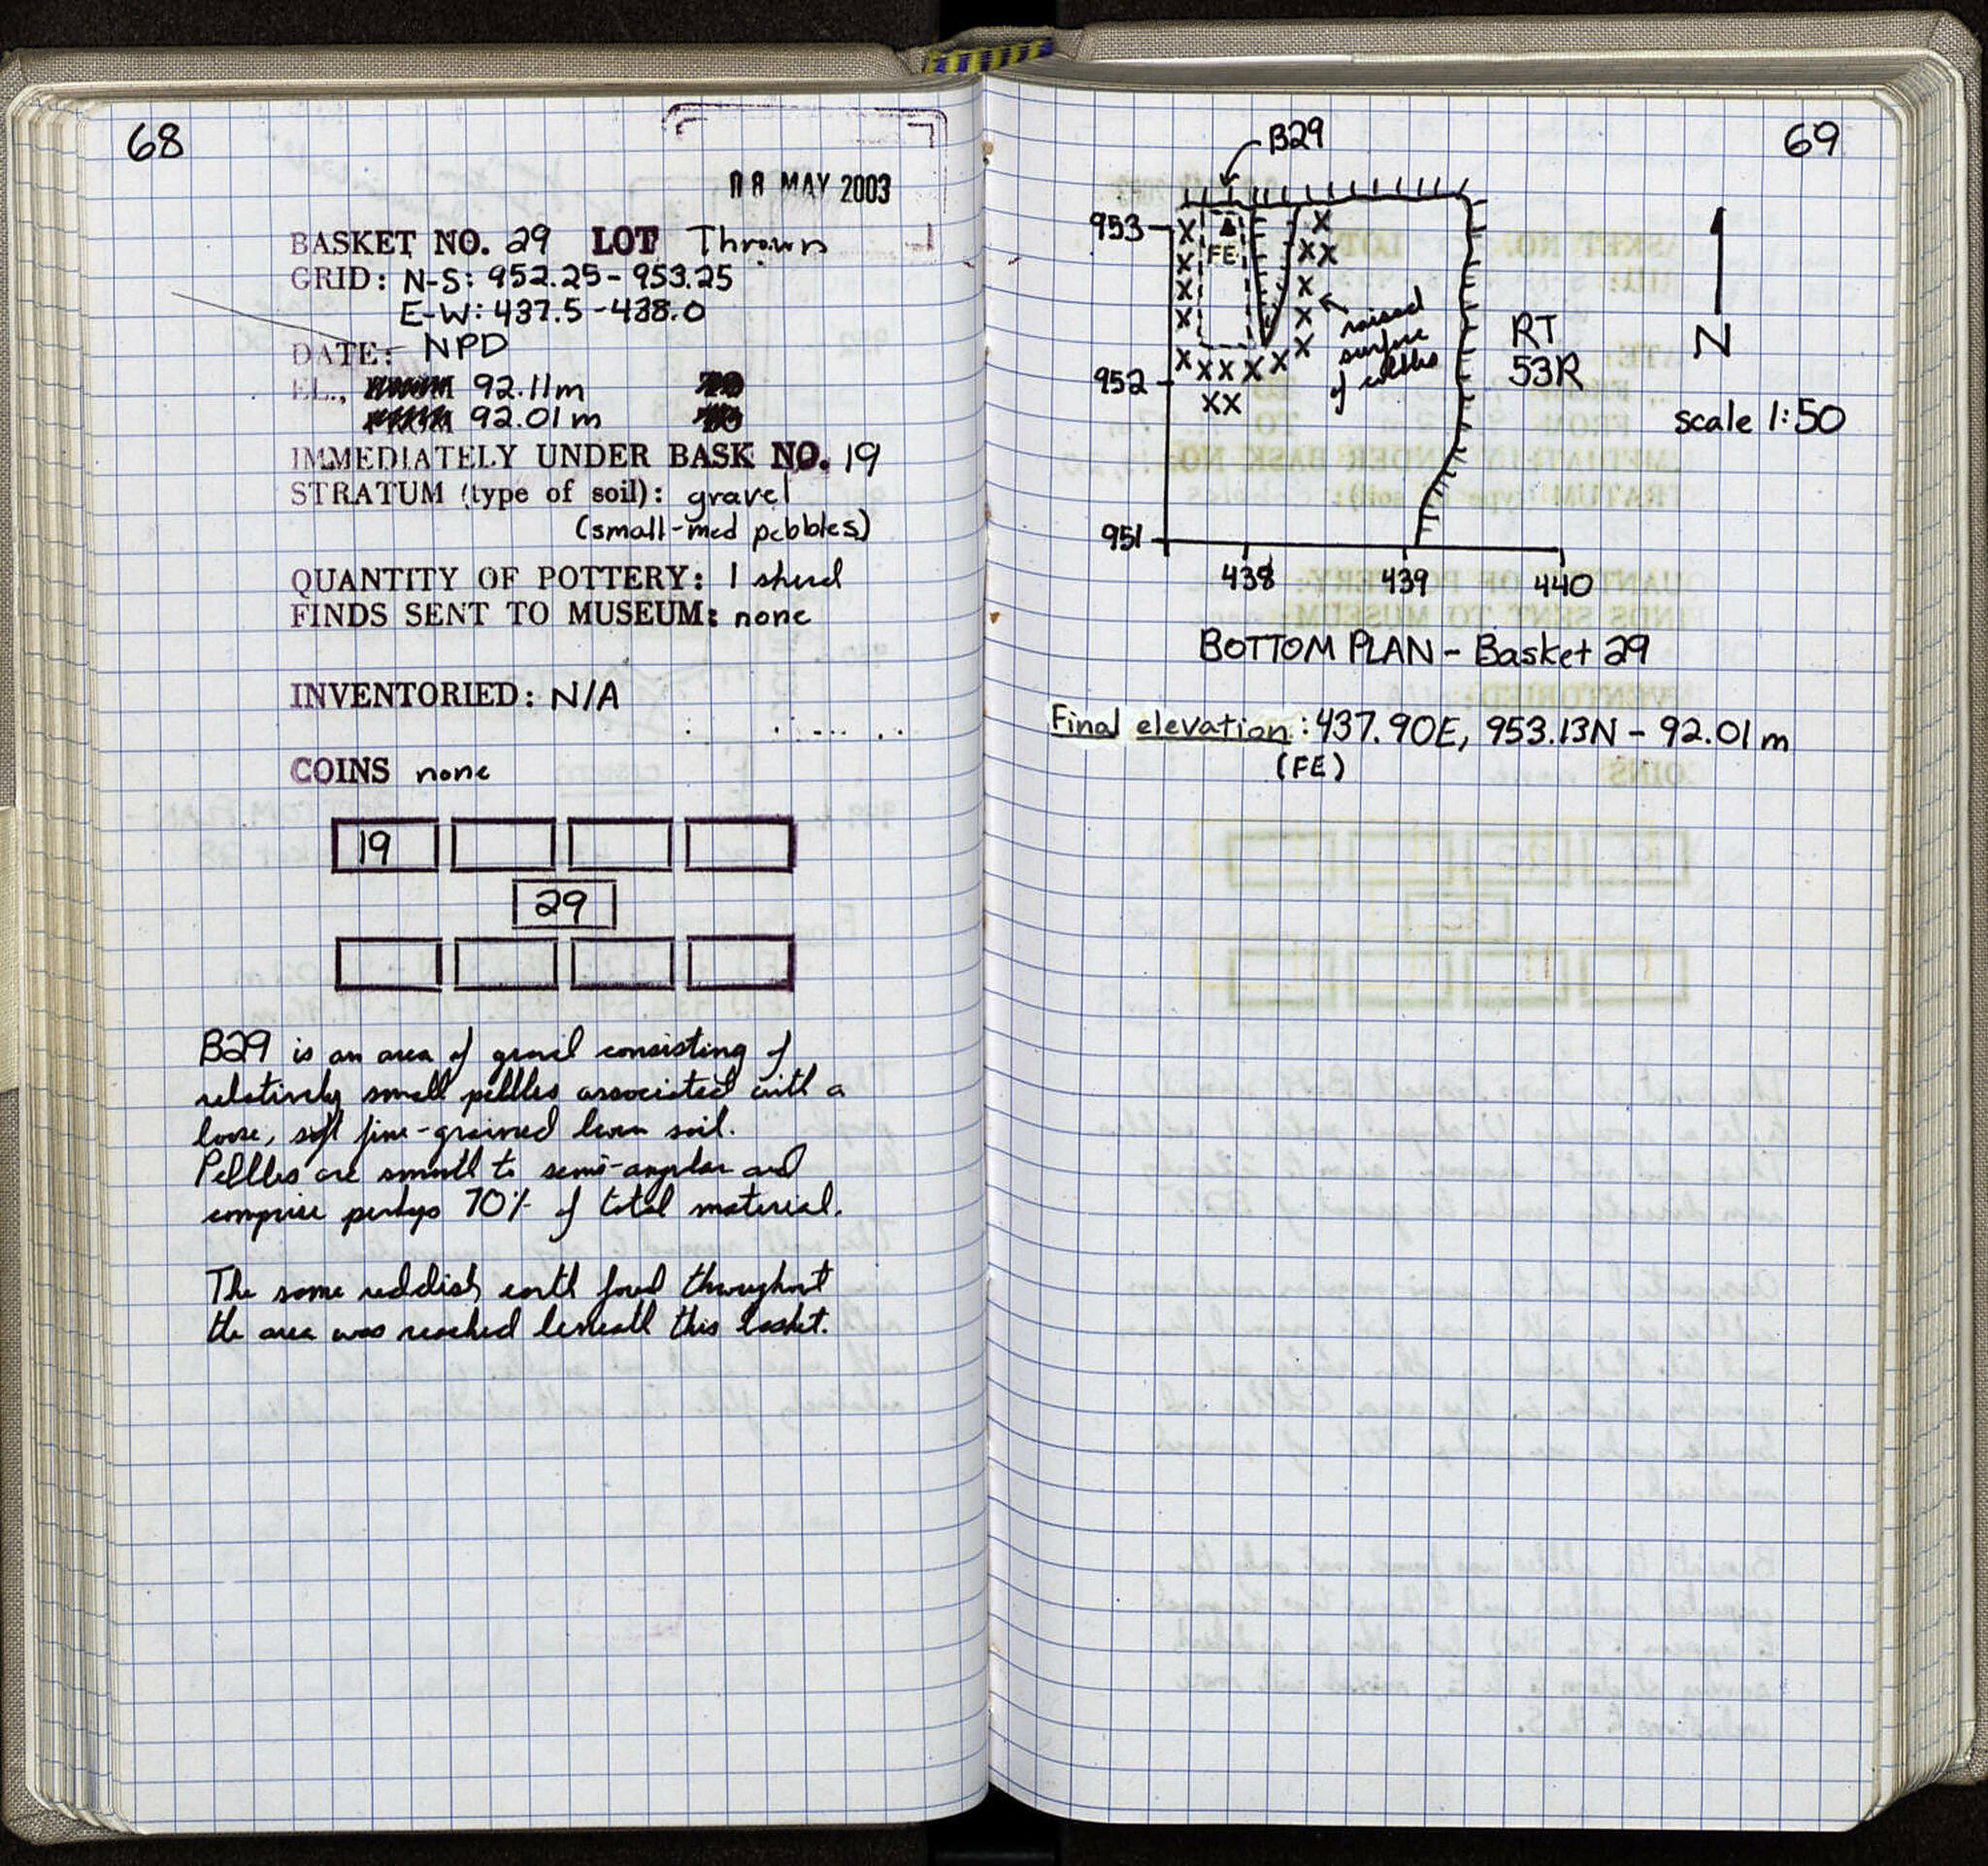 68
08 MAY 2003
BASKET NO. 29 LOT Thrown
GRID: N-S: 952.25-953.25
E-W: 437.5-438.0
DATE: NPD
EL., 92.11m
92.01m
IMMEDIATELY UNDER BASK NO. 19
STRATUM (type of soil): gravel
(small-med pebbles)
QUANTITY OF POTTERY: 1 sherd
FINDS SENT TO MUSEUM: none
INVENTORIED: N/A
COINS none
19
29
B29 is an area of gravel consisting of
relatively small pebbles associated with a
loose, soft fine-grained brown soil.
Pebbles are smooth to semi-angular and
comprise perhaps 70% of total material.
The same reddish earth found throughout
the area was reached beneath this basket.
69
B29
953
FE
raised
surface
of cobbles
952
951
438
439
440
RT
53R
N
scale 1:50
BOTTOM PLAN - Basket 29
Final elevation: 437.90E, 953.13N - 92.01m
(FE)